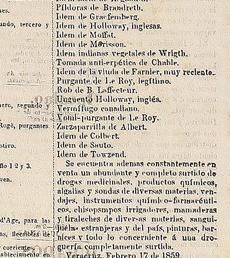 Píldoras de Brandreth.
Idem de Graefemberg.
Idem de Holloway, inglesas.
Idem de Moffat.
Idem de Morisson.
Idem indianas vegetales de Wrigth.
Tomada anti-erpética de Chable.
Idem de la viuda de Farnier, muy reciente.
Purgante de Le Roy, legítimo.
Rob de B. Laffecteur.
Ungüento Holloway, inglés.
Vermífugo canellano.
Vomi-purgante de Le Roy.
Zarzaparrilla de Albert.
Idem de Colbert.
Idem de Sauto.
Idem de Towzend.
Se encuentra ademas constantemente en
venta un abundante y completo surtido de
drogas medicinales, productos químicos,
algalias y sondas de diversas materias, ven-
dajes, instrumentos químico-farmacéuti-
cos, chisguetes irrigadores, mamaderas
y tiraleches de diversas materias, sangui-
juelas estranjeras y del país, pinturas, bar-
nices y todo lo concerniente á una dro-
guería completamente surtida.
Veracruz, Febrero 17 de 1859.
undo, tercero y
arro, segundo y
Rugé, purgantes
lo 1 2 y 3.
d'Age, para las
corriente.